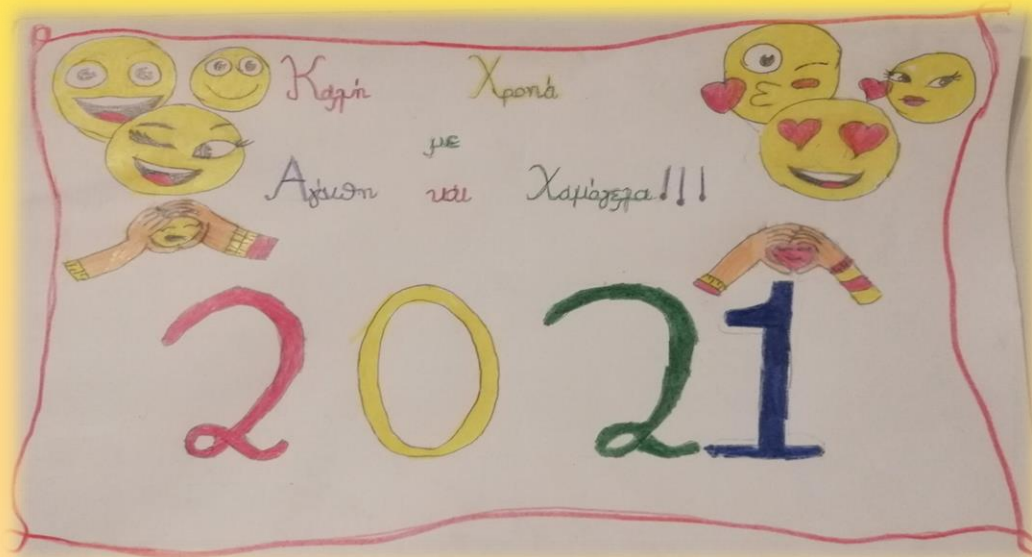 Καλή Χρονιά
με
Αγάπη και Χαμόγελα!!!
2021